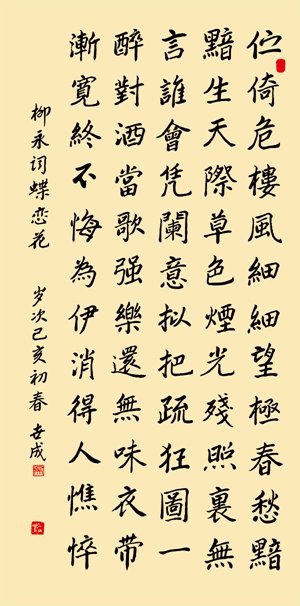 伫倚危樓風細細望極春愁黯
黯生天際草色煙光殘照裏無
言誰會凭闌意拟把疏狂圖一
醉對酒當歌强樂還無味衣帶
漸寬終不悔為伊消得人憔悴
柳永词蝶恋花 岁次己亥初春 世成